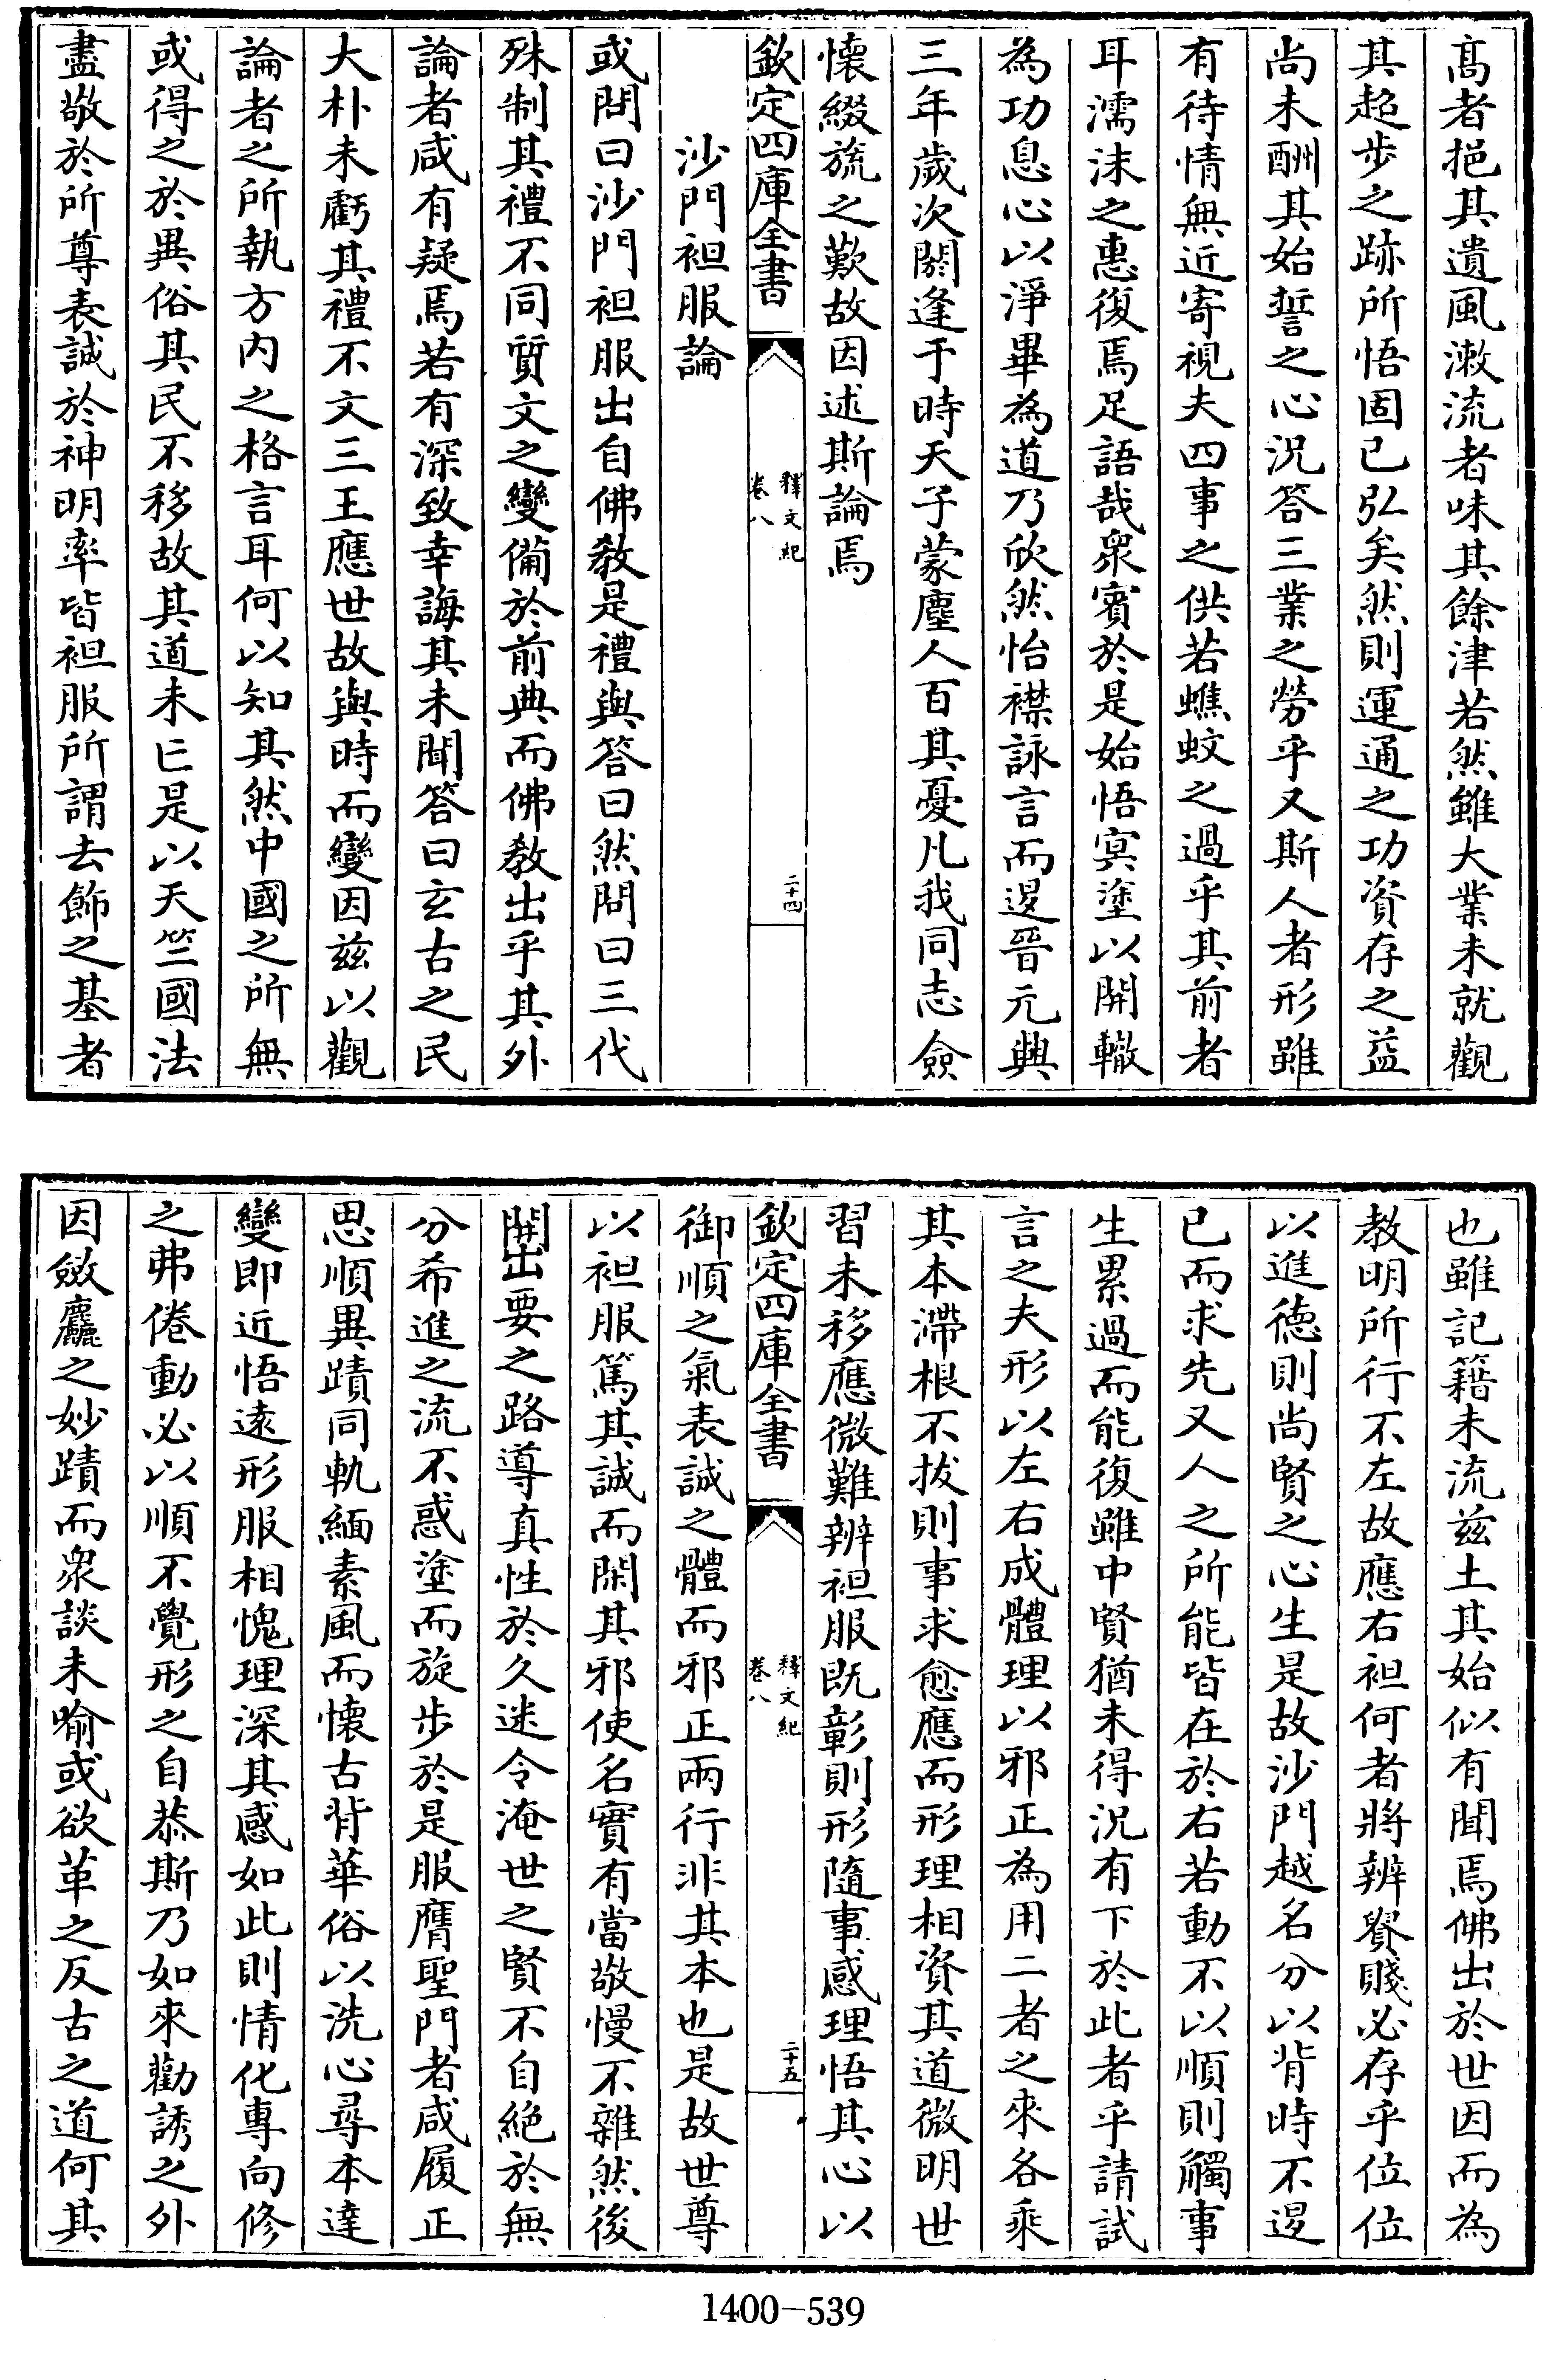 髙者挹其遺風漱流者味其餘津若然雖大業未就觀
其超步之跡所悟固已弘矣然則運通之功資存之益
尚未酬其始誓之心況答三業之勞乎又斯人者形雖
有待情無近寄視夫四事之供若蟭蚊之過乎其前者
耳濡沫之惠復焉足語哉衆賓於是始悟冥塗以開轍
為功息心以淨畢為道乃欣然怡襟詠言而退晉元興
三年歲次閼逢于時天子蒙塵人百其憂凡我同志僉
懷綴旒之歎故因述斯論焉
欽定四庫全書
釋文紀
卷八
二十四
沙門袒服論
或問曰沙門袒服出自佛教是禮與答曰然問曰三代
殊制其禮不同質文之變備於前典而佛教出乎其外
論者咸有疑焉若有深致幸誨其未聞答曰玄古之民
大朴未虧其禮不文三王應世故與時而變因兹以觀
論者之所執方内之格言耳何以知其然中國之所無
或得之於異俗其民不移故其道未亡是以天竺國法
盡敬於所尊表誠於神明率皆袒服所謂去飾之基者
也雖記籍未流兹土其始似有聞焉佛出於世因而為
教明所行不左故應右袒何者將辨貴賤必存乎位位
以進德則尚賢之心生是故沙門越名分以背時不退
已而求先又人之所能皆在於右若動不以順則觸事
生累過而能復雖中賢猶未得況有下於此者乎請試
言之夫形以左右成體理以邪正為用二者之來各乘
其本滯根不拔則事求愈應而形理相資其道微明世
習未移應微難辨袒服既彰則形隨事感理悟其心以
欽定四庫全書
釋文紀
卷八
二十五
御順之氣表誠之體而邪正兩行非其本也是故世尊
以袒服篤其誠而閑其邪使名實有當敬慢不雜然後
開出要之路導真性於久迷令淹世之賢不自絶於無
分希進之流不惑塗而旋步於是服膺聖門者咸履正
思順異蹟同軌緬素風而懷古背華俗以洗心尋本達
變即近悟遠形服相愧理深其感如此則情化專向修
之弗倦動必以順不覺形之自恭斯乃如來勸誘之外
因斂麤之妙蹟而衆談未喻或欲革之反古之道何其
1400-539